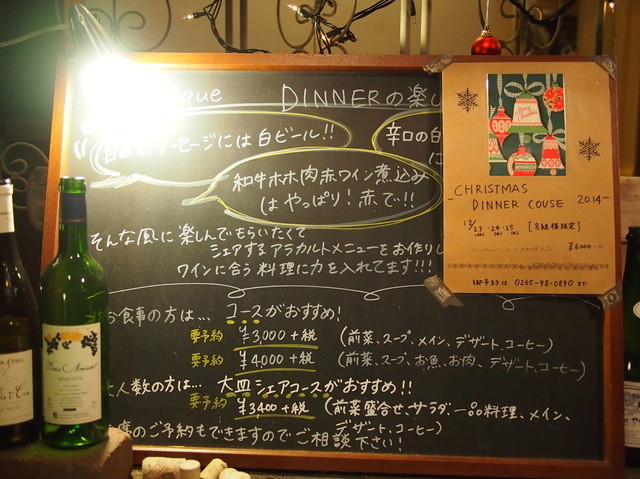 que DINNERの楽し
ソーセージには白ビール!!
辛口の白
に
和牛ホホ肉赤ワイン煮込み
はやっぱり!赤で..!!
そんな風に楽しんでもらいたくて
シェアするアラカルトメニューをお作りし
ワインに合う料理に力を入れてます!!!
お食事の方は... コースがおすすめ!
要予約 ¥3,000+税 (前菜、スープ、メイン、デザート、コーヒー)
要予約 ¥4,000+税 (前菜、スープ、お魚、お肉、デザート、コーヒー)
人数の方は... 大皿シェアコースがおすすめ!!
要予約 ¥3400+税 (前菜盛合せ、サラダ、一品料理、メイン、
デザート、コーヒー)
のご予約もできますのでご相談下さい!
CHRISTMAS
DINNER COUSE 2014
12/23・24・25 [8組様限定]
¥6,000
0265-98-0890 まで